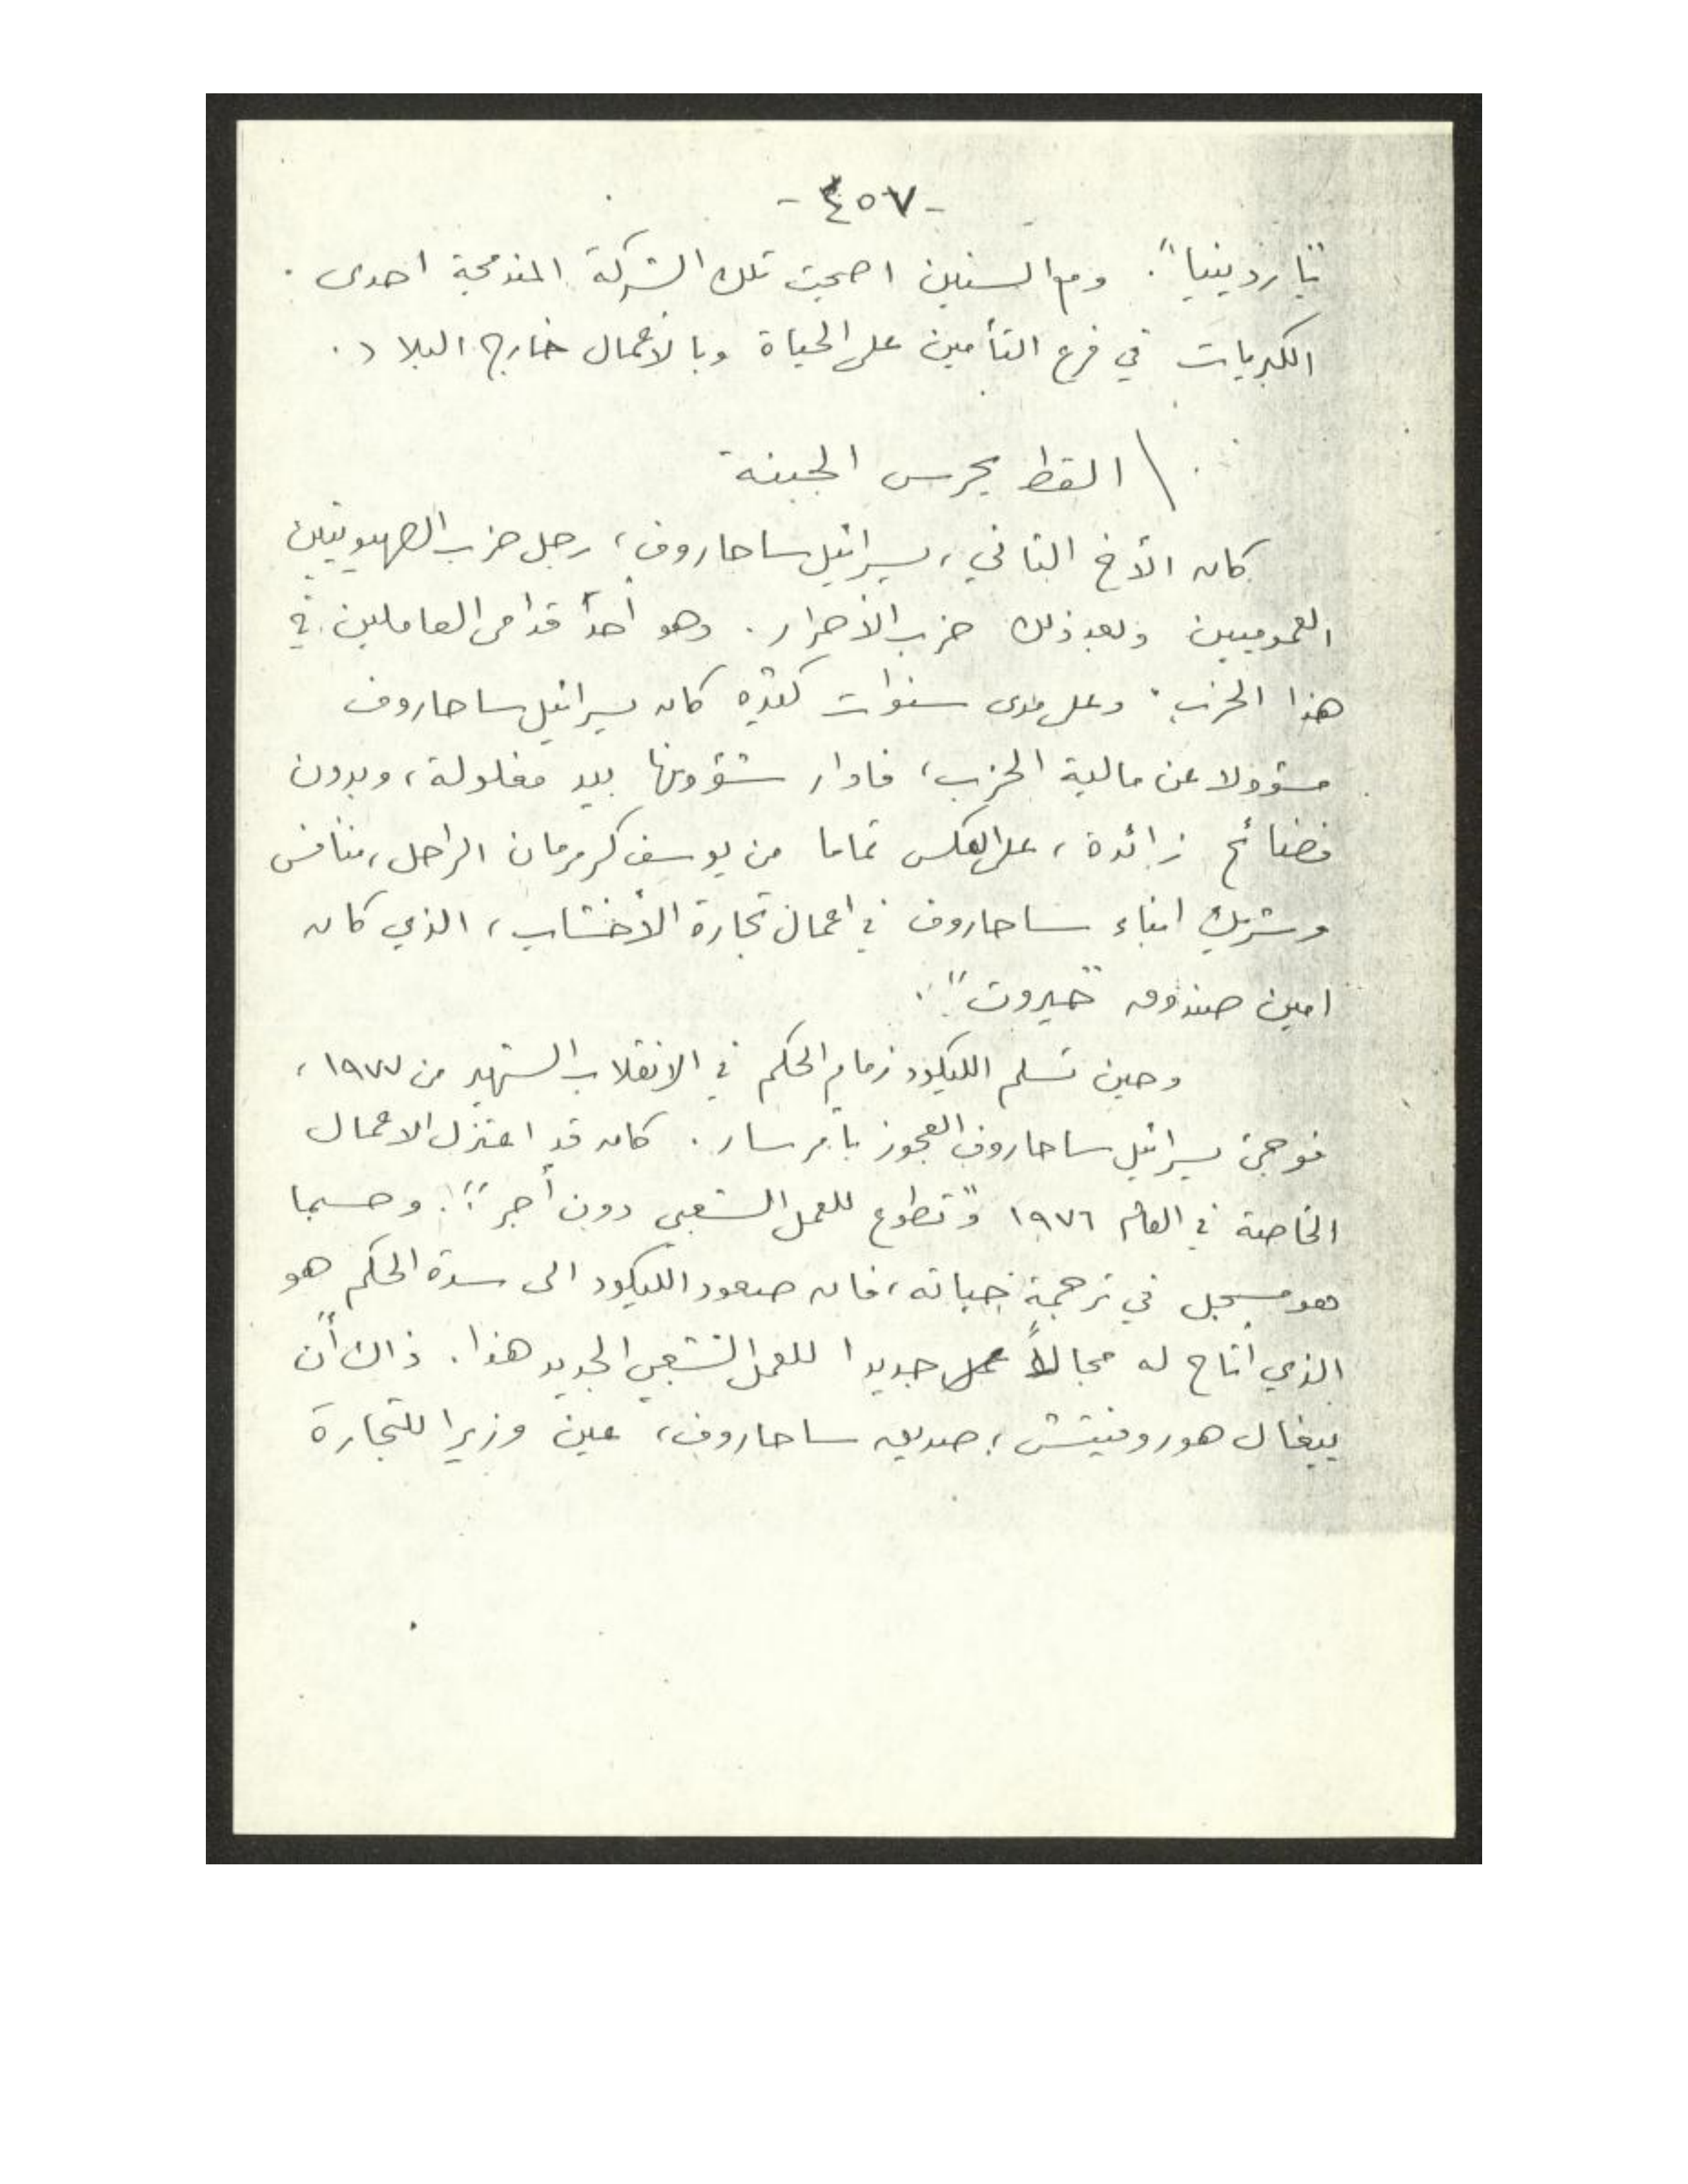 -٤٥٧-
"ياردينيا". ومع السنين اصبحت تلك الشركة المندمجة احدى
الكبريات في فرع التأمين على الحياة وبالاعمال خارج البلاد.
القط يحرس الجبنة
كان الأخ الثاني، يسرائيل ساحاروف، رجل حزب الصهيونيين
العموميين وبعد ذلك حزب الأحرار. وهو أحد قدامى العاملين في
هذا الحزب. وعلى مدى سنوات كثيرة كان يسرائيل ساحاروف
مسؤولا عن مالية الحزب، فادار شؤونها بيد مغلولة، وبدون
فضائح زائدة، على العكس تماما من يوسف كرمرمان الراحل، منافس
وشريك ابناء ساحاروف في اعمال تجارة الأخشاب، الذي كان
امين صندوق "حيروت".
وحين تسلم الليكود زمام الحكم في الانقلاب الشهير من ١٩٧٧،
فوجئ يسرائيل ساحاروف العجوز بأمر سار. كان قد اعتزل الاعمال
الخاصة في العام ١٩٧٦ و"تطوع للعمل الشعبي دون أجر"! وحسبما
هو مسجل في ترجمة حياته، فان صعود الليكود الى سدة الحكم هو
الذي أتاح له مجالاً جديدا للعمل الشعبي الجديد هذا. ذاك أن
ييغال هوروفيتش، صديق ساحاروف، عين وزيرا للتجارة